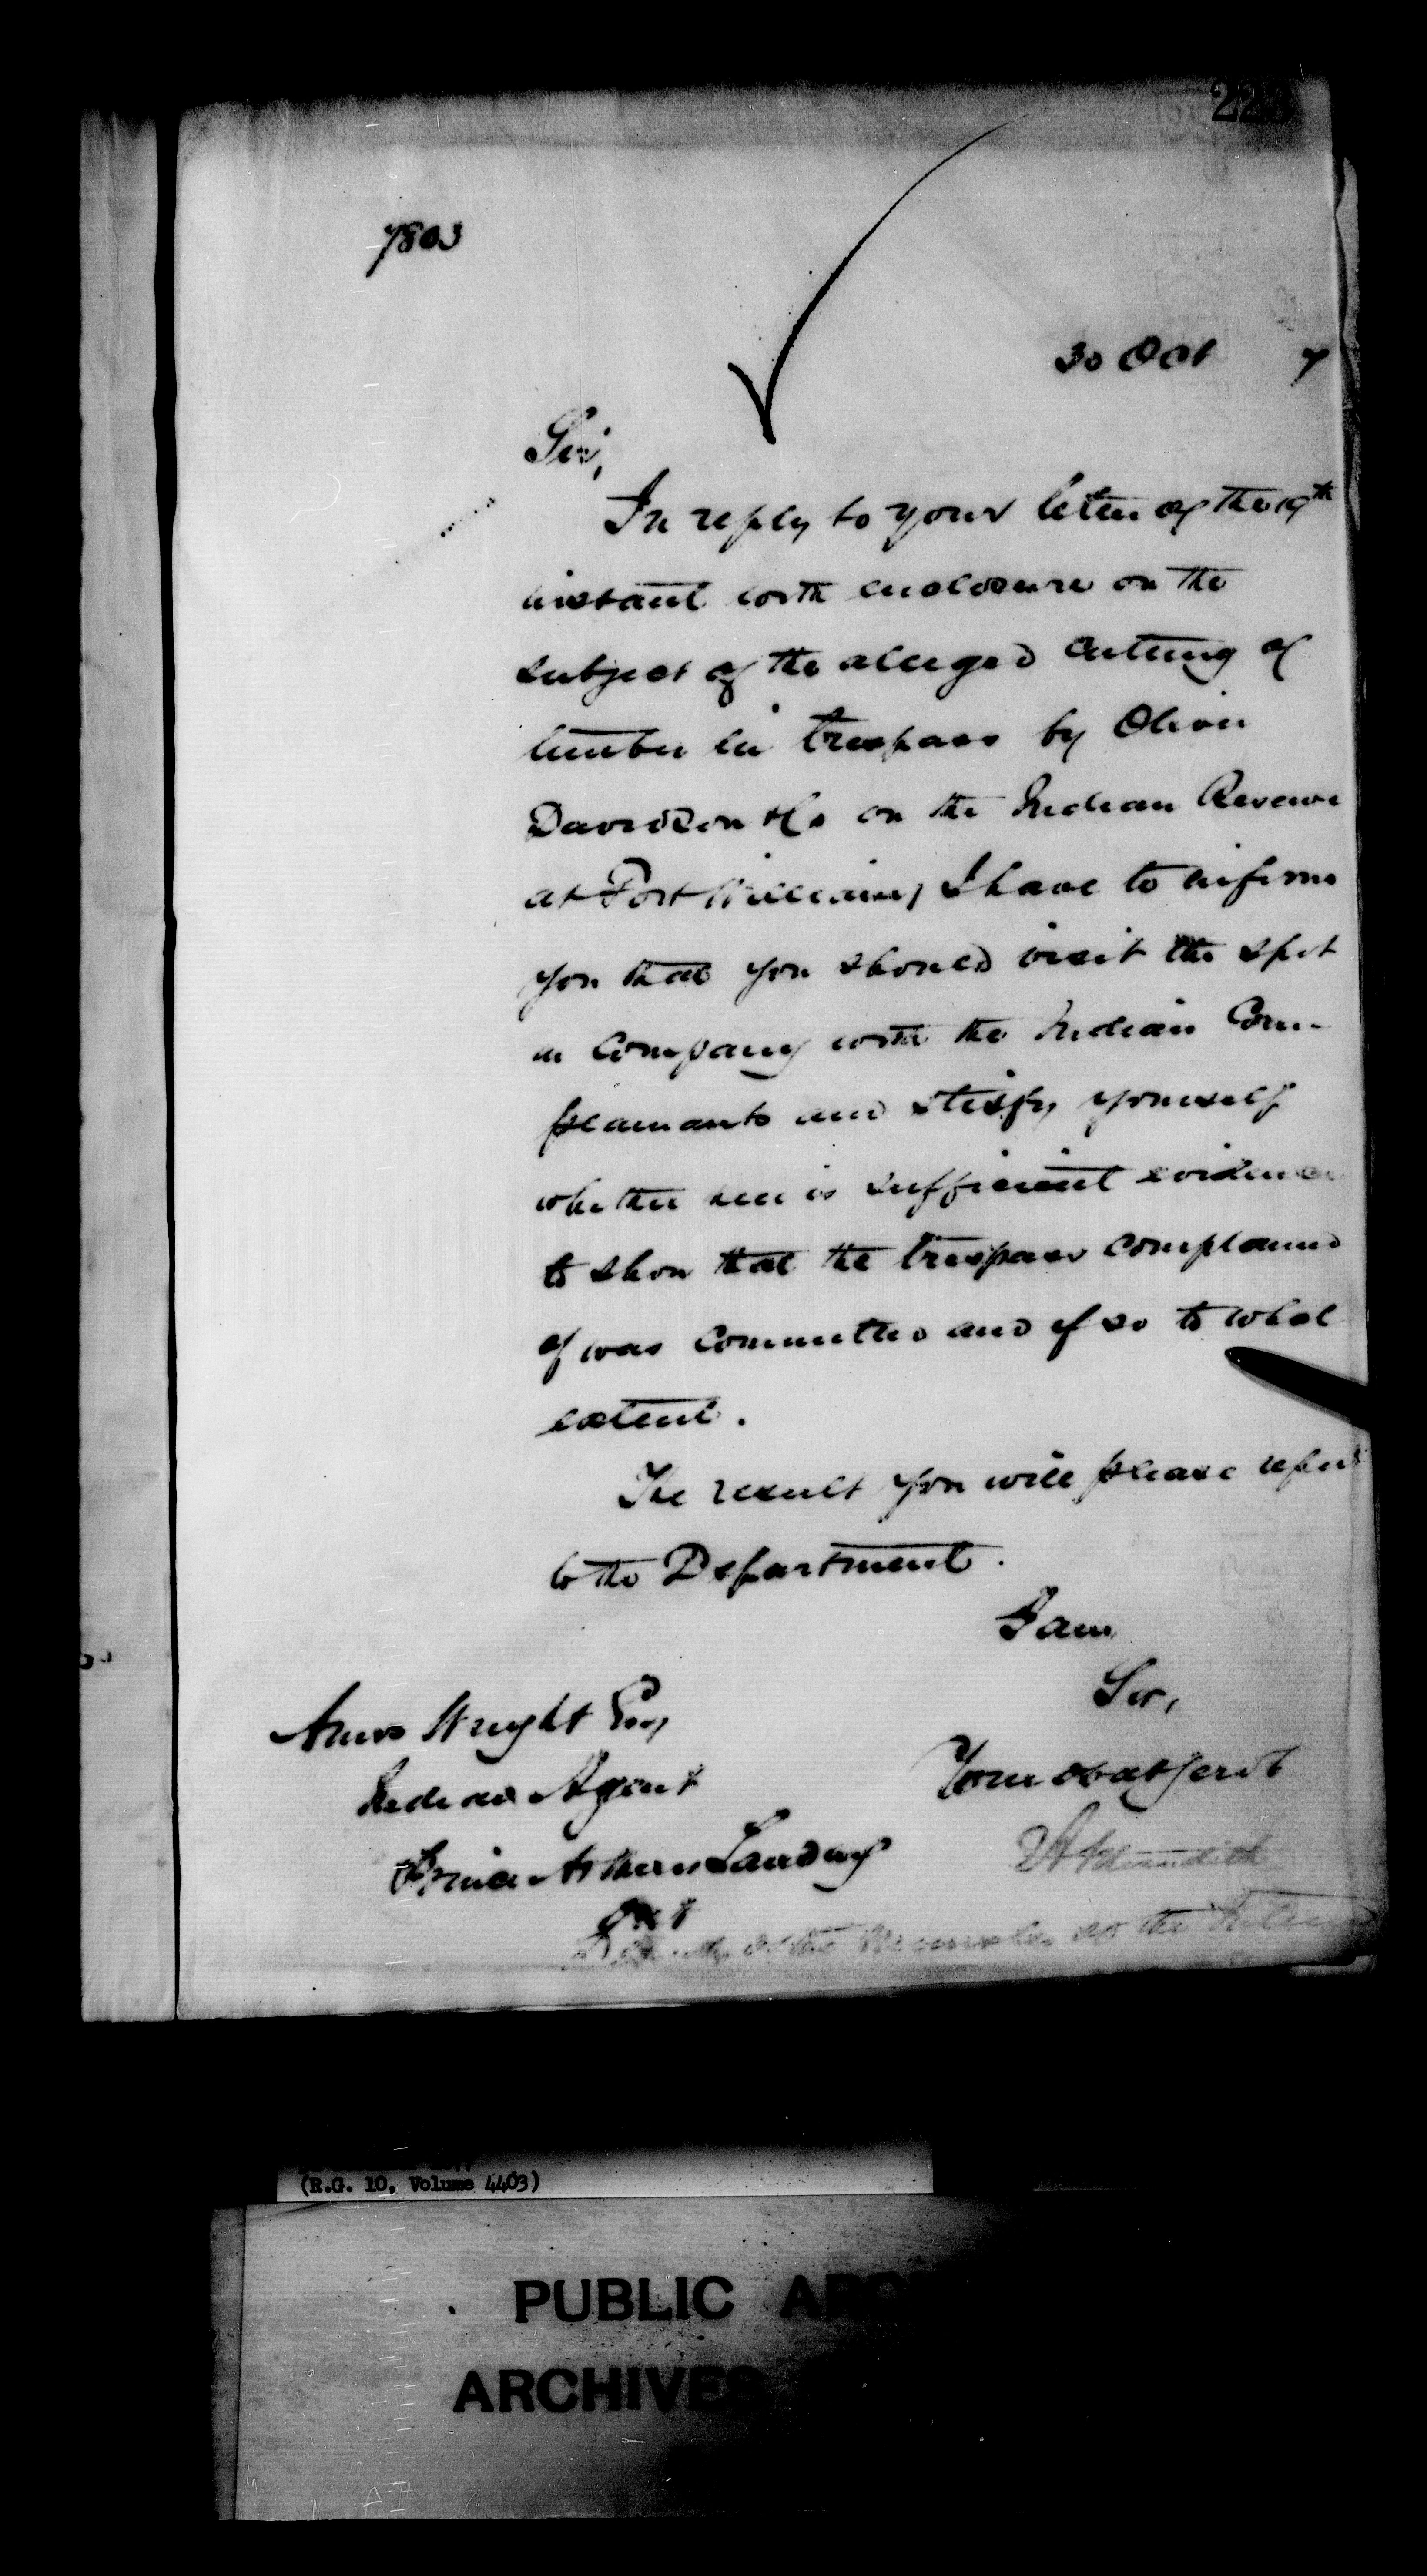 7803
30 Oct 7
Sir,
In reply to your letter of the 19th
instant with enclosure on the
subject of the alleged cutting of
timber in trespass by Oliver
Davidson & Co on the Indian Reserve
at Fort William, I have to inform
you that you should visit the spot
in Company with the Indian Com-
plainants and stisfy yourself
whether there is sufficient evidence
to show that the trespass complained
of was committed and if so to what
extent.
The result you will please report
to the Department.
I am,
Sir,
Your obdt Servt
Amos Wright Esq
Indian Agent
Prince Arthurs Landing
Ont
EA Meredith
Deputy of the Minister of the Interior
(R.G. 10, Volume 4403)
PUBLIC
ARCHIVES